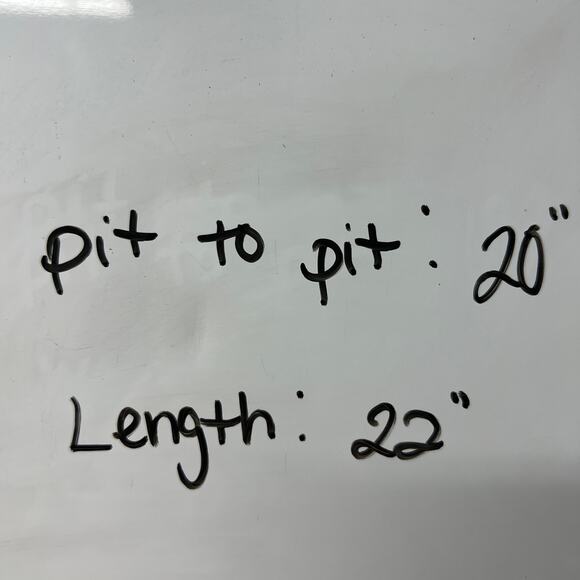 pit to pit: 20"
Length: 22"